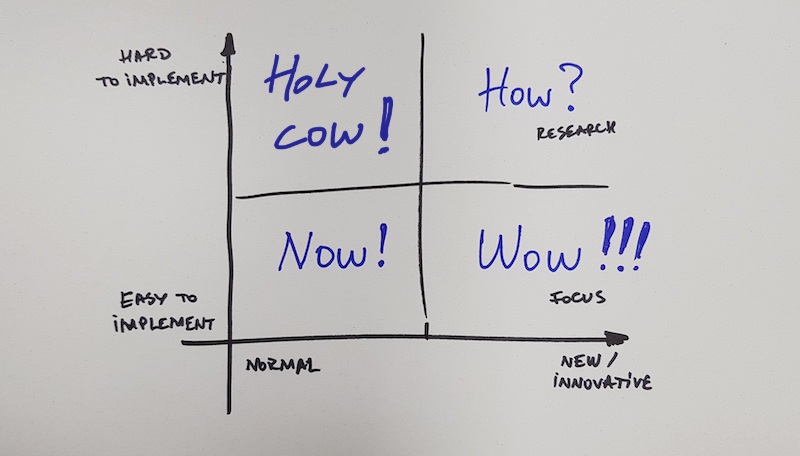 HARD
TO IMPLEMENT
HOLY
COW!
How?
RESEARCH
Now!
Wow!!!
FOCUS
EASY TO
IMPLEMENT
NORMAL
NEW/
INNOVATIVE